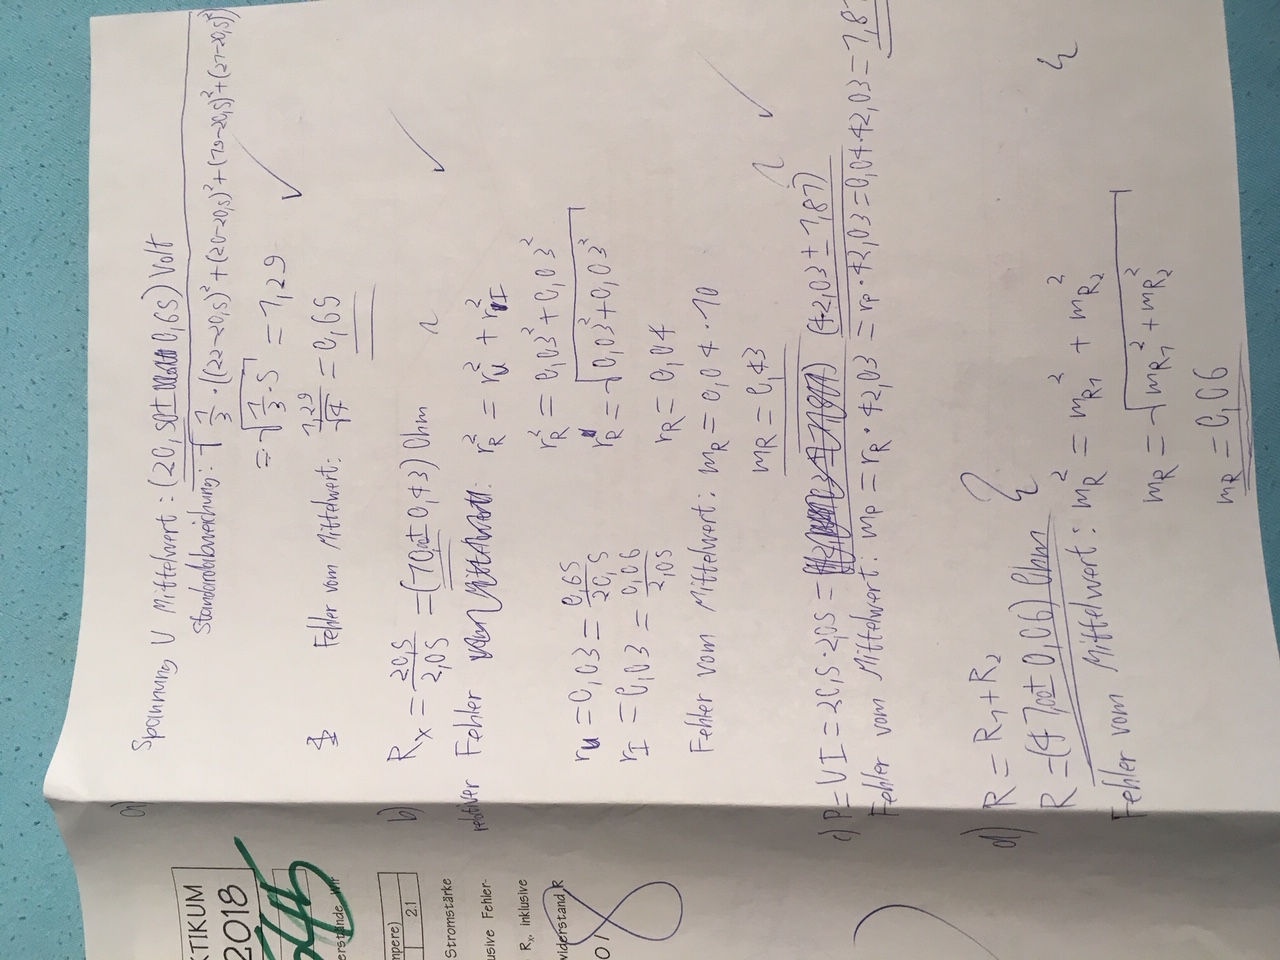 KTIKUM
2018
545
erstände. Wir
mpere)
2.1
Stromstärke
usive Fehler-
Rx, inklusive
widerstand R
0 /
8
a)
Spannung U Mittelwert: (20,50± 0,65) Volt
Standardabweichung: √1/3 · ((22-20,5)² + (20-20,5)² + (19-20,5)² + (21-20,5)²)
= √1/3 · 5 = 1,29
Fehler vom Mittelwert: 1,29/√4 = 0,65
b) Rx = 20,5/2,05 = (10,00± 0,43) Ohm
relativer Fehler : r²R = r²u + r²I
r²R = 0,03² + 0,03²
ru = 0,03 = 0,65/20,5
rR = √0,03² + 0,03²
rI = 0,03 = 0,06/2,05
rR = 0,04
Fehler vom Mittelwert: mR = 0,04 · 10
mR = 0,43
c) P = UI = 20,5 · 2,05 = (42,03 ± 1,87)
Fehler vom Mittelwert: mP = rR · 42,03 = rP · 42,03 = 0,04 · 42,03 = 1,87
d) R = R1 + R2
R = (47,00± 0,06) Ohm
Fehler vom Mittelwert: mR² = mR1² + mR2²
mR = √mR1² + mR2²
mR = 0,06